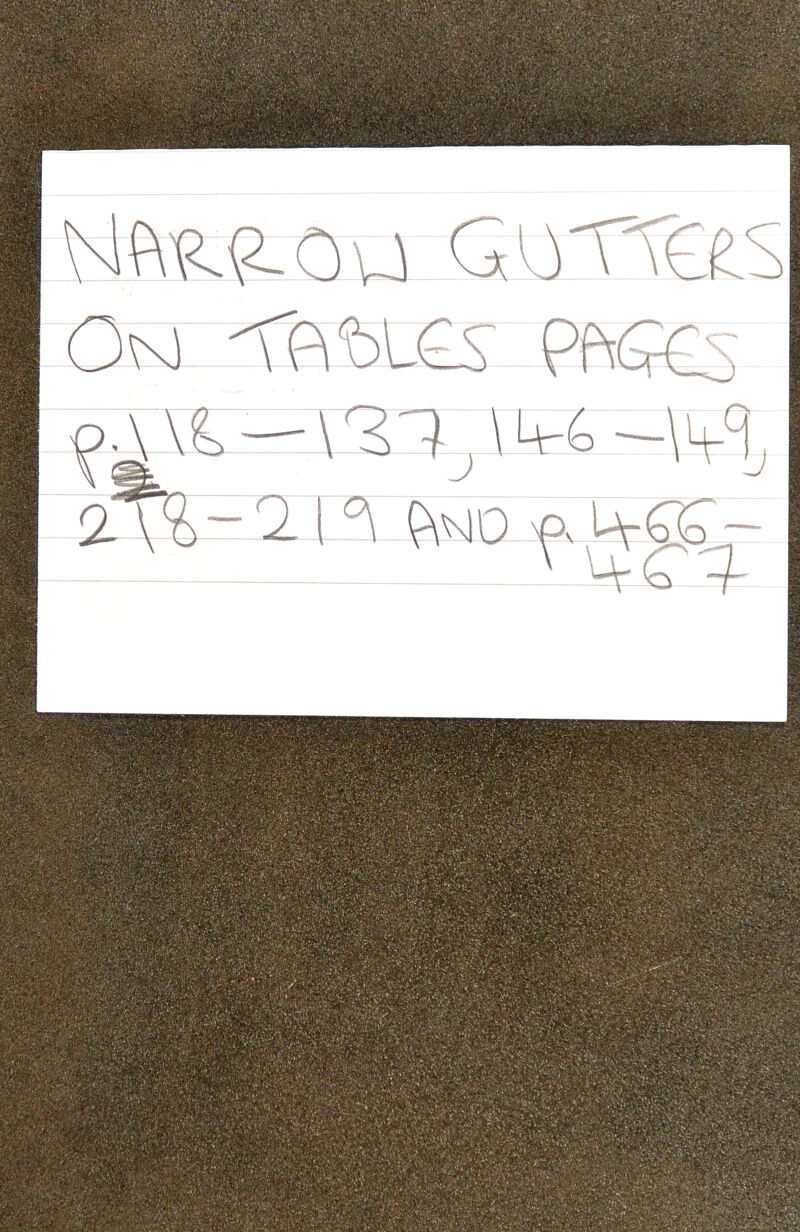 NARROW GUTTERS
ON TABLES PAGES
p.118—137, 146—149,
218-219 AND p. 466-
467